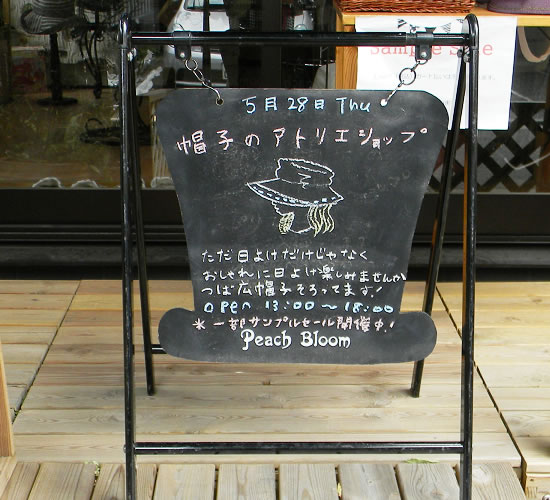 Sample Sale
5月28日 Thu
帽子のアトリエショップ
ただ日よけだけじゃなく
おしゃれに日よけ楽しみませんか
つば広帽子そろってます!
open 13:00〜18:00
*一部サンプルセール開催中!
Peach Bloom